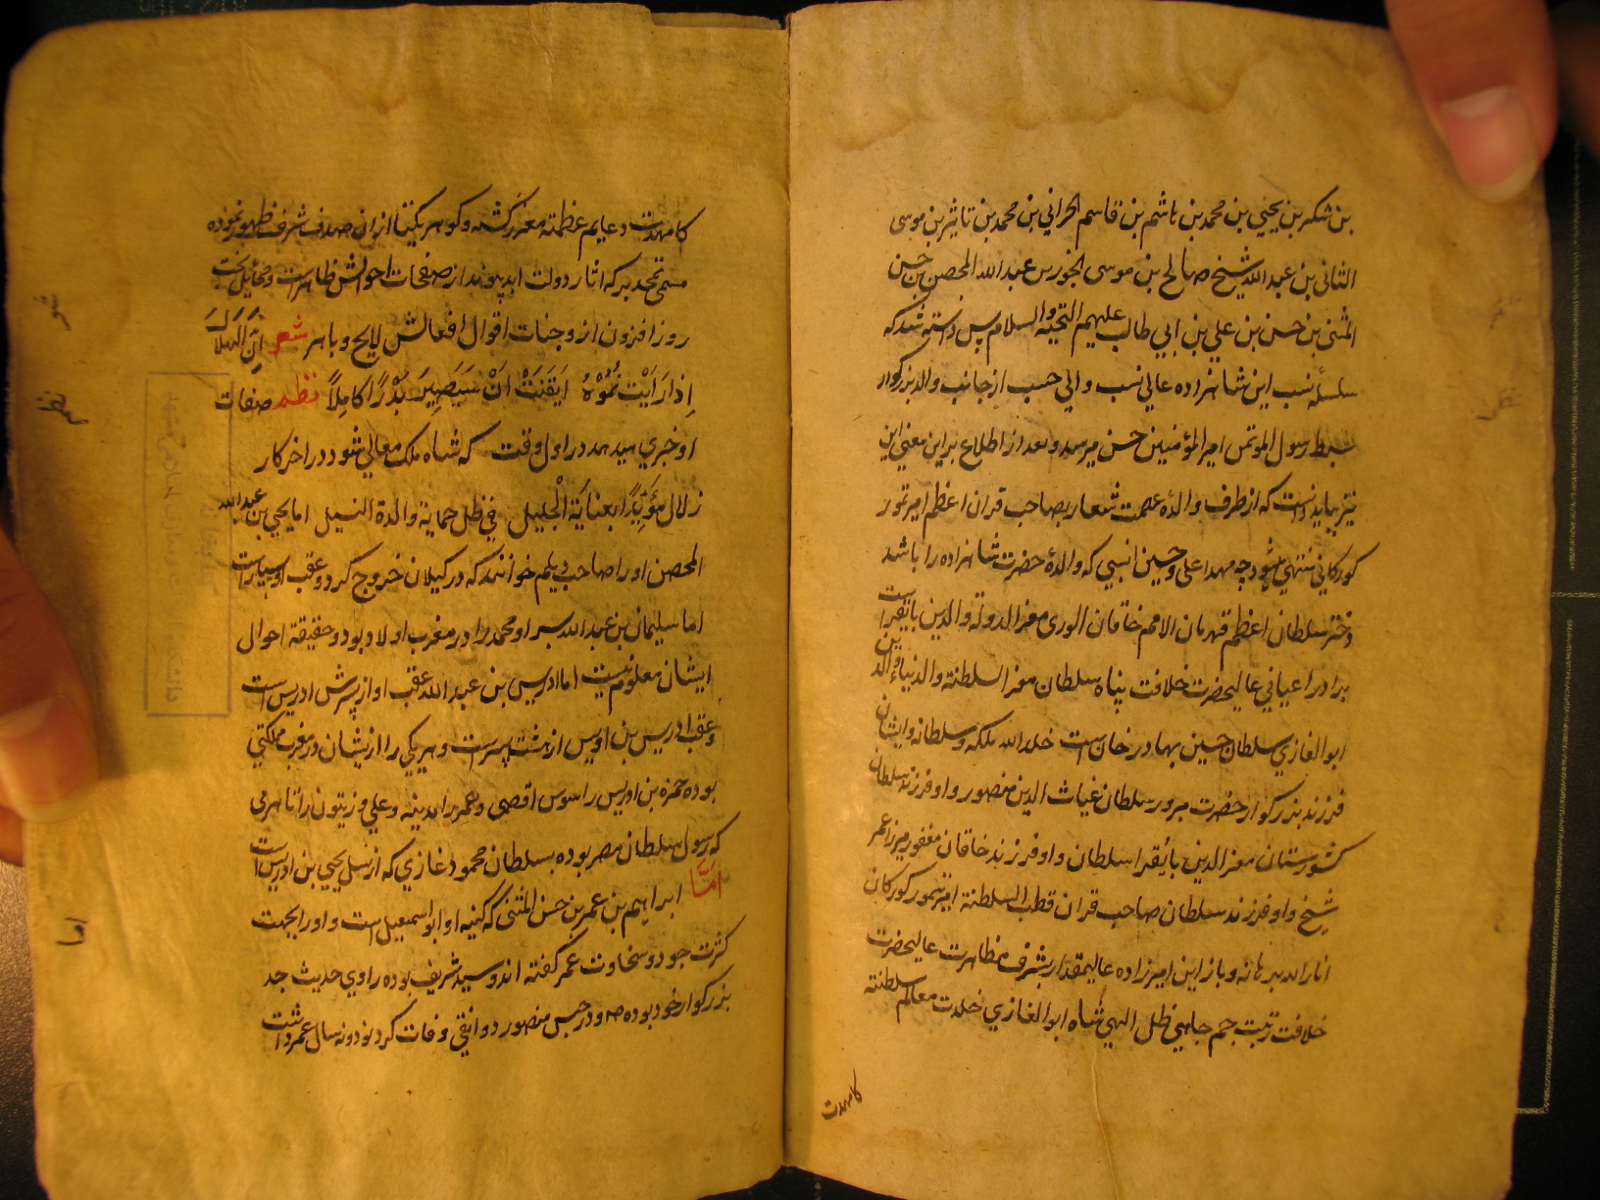 بن شکر بن یحیی بن محمد بن هاشم بن قاسم الحرانی بن محمد بن تاثیر بن موسی
الثانی بن عبد الله شیخ صالح بن موسی الجور بن عبد الله المحصن بن حسن
المثنی بن حسن بن علی بن ابی طالب علیهم التحیة والسلام پس دانسته شد که
سلسله نسب این شاهزاده عالی نسب والی حسب از جانب والد بزرکوار
بسبط رسول المؤتمن امیر المؤمنین حسن میرسد و بعد از اطلاع برین معنی این
نیز بباید دانست که از طرف والدهٔ عصمت شعار بصاحب قران اعظم امیر تمور
کورکانی منتهی میشود چه مهد اعلی و حسین انسبی که والدهٔ حضرت شاهزاده را باشد
دختر سلطان اعظم قهرمان الامم خاقان الوری معز الدولة والدین بایقراست
برادر اعیانی عالیحضرت خلافت پناه سلطان معز السلطنة والدنیا والدین
ابو الغازی سلطان حسین بهادر خان است خلد الله ملکه وسلطانه وایشان
فرزند بزرکوار حضرت مبرور سلطان غیاث الدین منصور و او فرزند سلطان
کشورستان معز الدین بایقرا سلطان و او فرزند خاقان مغفور میرزا عمر
شیخ و او فرزند سلطان صاحب قران قطب السلطنة امیر تیمور کورکان
انار الله برهانه و باز این امیرزاده عالیمقدار بشرف مظاهرت عالیحضرت
خلافت رتبت جم جاهی ظل الهی شاه ابو الغازی خلدت معالم سلطنته
کامهدت
کامهدت دعایم عظمته معزز کشته و کوهر یکتا از ان صدف شرف ظهور نموده
مسمی بمحمد برکه اثار دولت ابد پیوند از صفحات احوالش ظاهر است ومخایل بخت
روز افزون از وجنات اقوال افعالش لایح و باهر شعر اِنَّ الْهِلَالَ
اِذَا رَاَیْتَ نُمُوَّهُ اَیْقَنْتَ اَنْ سَیَصِیرَ بَدْرًا کَامِلًا نظم صفات
او خبری میدهد در اول وقت که شاه ملک معالی شود در اخر کار
زلال مؤیدا بعنایة الجلیل فی ظل حمایة والدة النبیل اما یحیی بن عبد الله
المحصن او را صاحب دیلم خوانند که در کیلان خروج کرد و عقب او بسیار است
اما سلیمان بن عبد الله پسر او محمد را در مغرب اولاد بود و حقیقة احوال
ایشان معلوم نیست اما ادریس بن عبد الله عقب او از پسرش ادریس است
و عقب ادریس بن ادریس از هشت پسر است و هر یکی را از یشان در مغرب مملکتی
بوده حمزه بن ادریس را سوس اقصی و عمر را مدینه و علی و زیتون را تاهرتی
که رسول سلطان مصر بوده بسلطان محمود غازی که از نسل یحیی بن ادریس است
اَمّا ابراهیم بن عمر بن حسن المثنی که کنیه او ابو اسمعیل است و او را بجهت
کثرت جود و سخاوت عمر کفته اند و سید شریف بوده راوی حدیث جد
بزرکوار خود بوده و در حبس منصور دوانقی وفات کرد نود و نه سال عمر داشت
شعر
نظم
اما